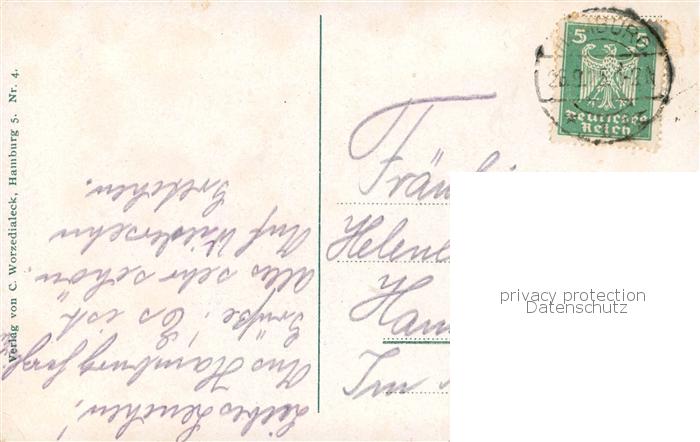 Liebes Lenchen!
Aus Hamburg herzl.
Grüße, Es ist
alles sehr schön.
Auf Wiedersehn
Gretchen.
Verlag von C. Worzedialeck, Hamburg 5. Nr. 4.
5 5
Deutsches
Reich
BURG
Fräul
Helene
Ham
Im
privacy protection
Datenschutz